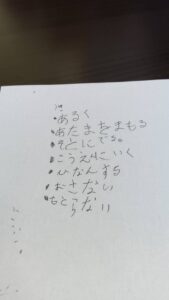 ・あるく
・あたまをまもる
・そとにでる。
・こうえんにいく
・ひなんする
・おさない
・もどらない